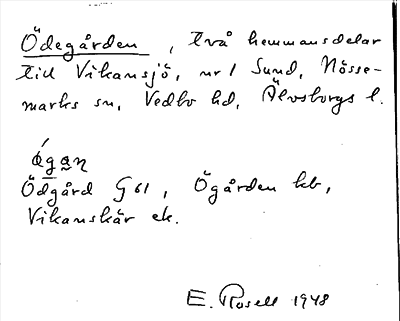 Ödegården, två hemmansdelar
till Vikansjö, nr 1 Sund, Nösse-
marks sn, Vedbo hd, Älvsborgs l.
ǿgaꞑ
Ödgård G 61, Ögården kb,
Vikanskär ek.
E. Rosell 1948